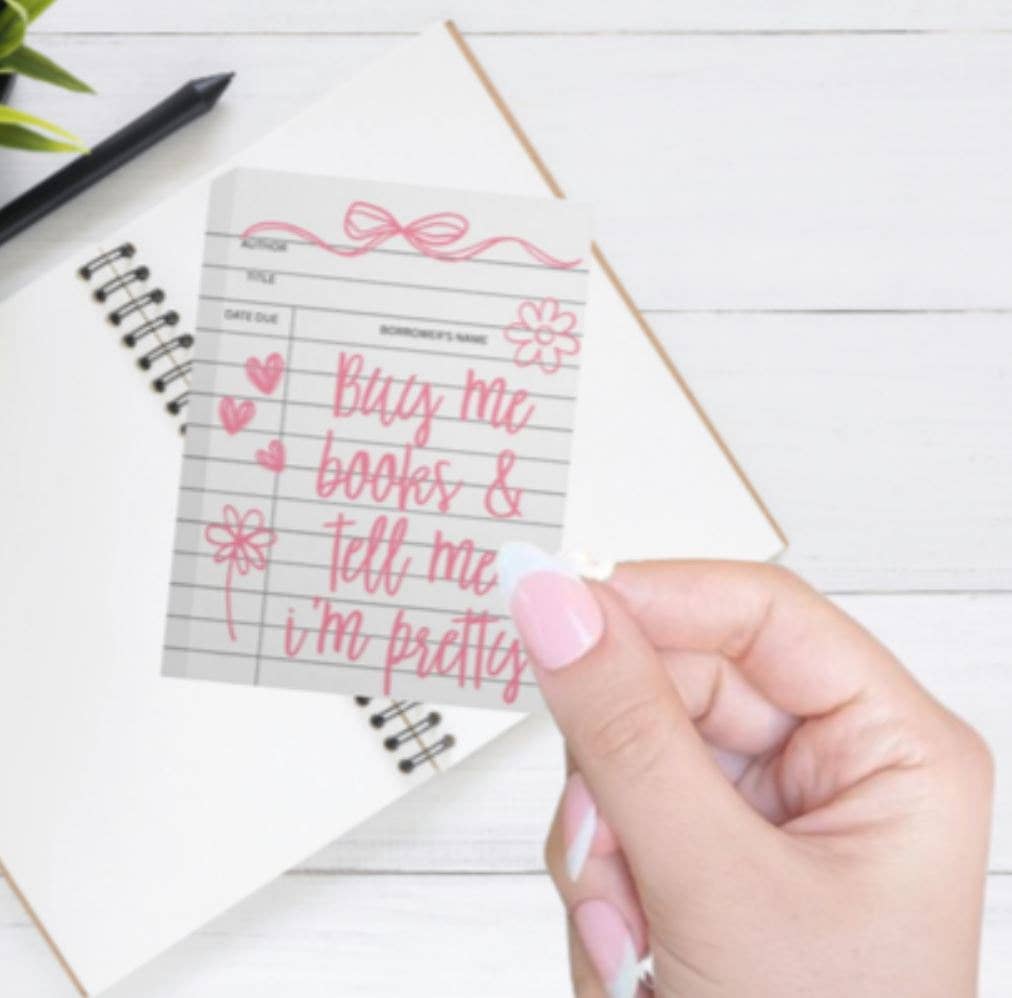 AUTHOR
TITLE
DATE DUE
BORROWER'S NAME
Buy me
books &
tell me
i'm pretty